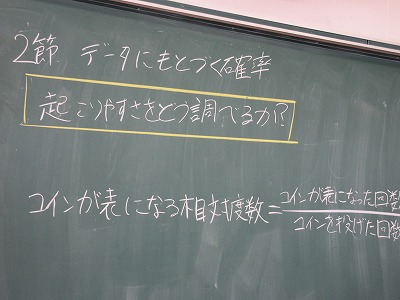 2節 データにもとづく確率
起こりやすさをどう調べるか?
コインが表になる相対度数=
コインが表になった回数
コインを投げた回数